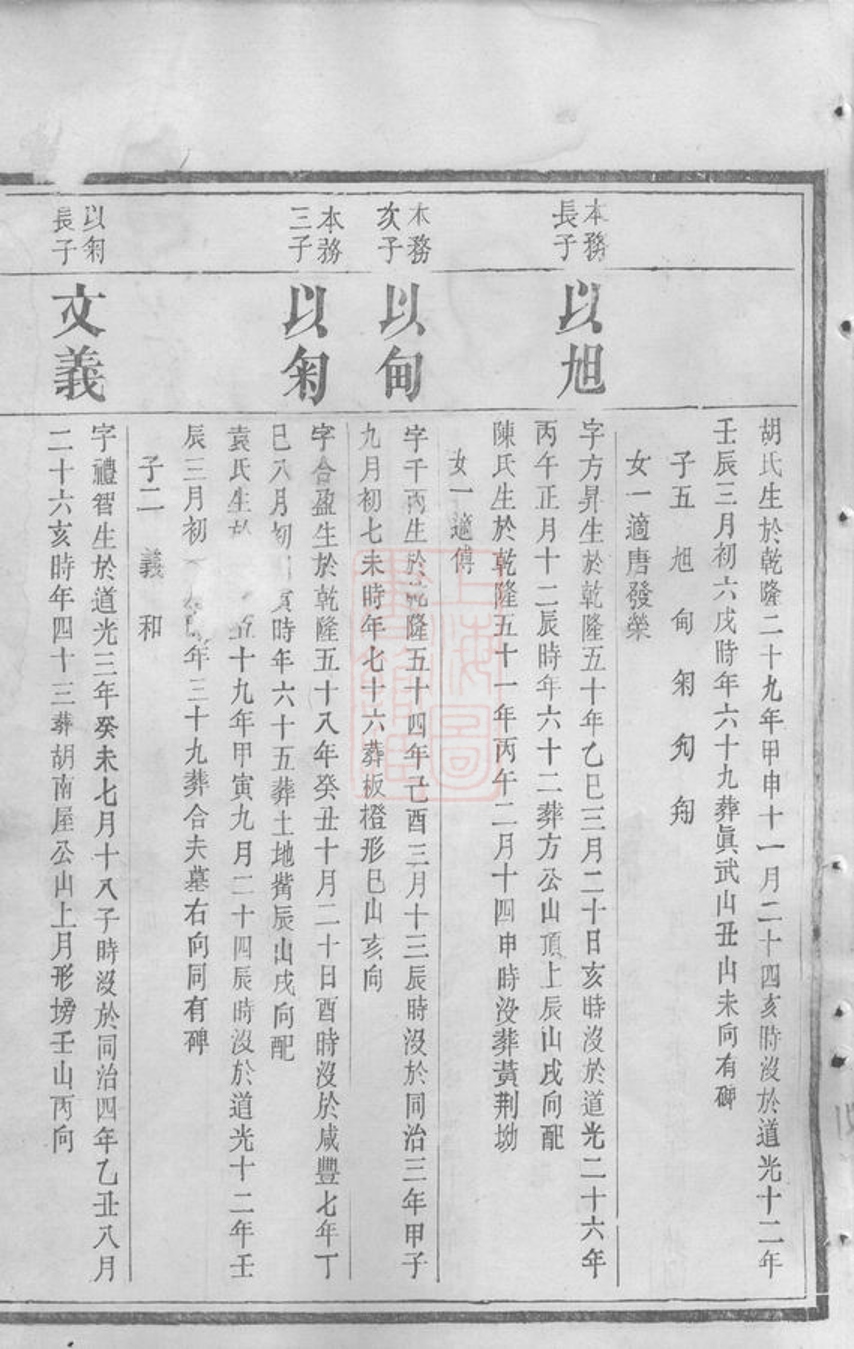 胡氏生於乾隆二十九年甲申十一月二十四亥時沒於道光十二年
壬辰三月初六戌時年六十九葬眞武山丑山未向有碑
子五 旭 甸 匊
女一適唐發榮
本務
長子
以旭
字方昇生於乾隆五十年乙巳三月二十日亥時沒於道光二十六年
丙午正月十二辰時年六十二葬方公山頂上辰山戌向配
陳氏生於乾隆五十一年丙午二月十四申時沒葬黃荆坳
女一適傅
本務
次子
以甸
字千丙生於乾隆五十四年己酉三月十三辰時沒於同治三年甲子
九月初七未時年七十六葬板橙形巳山亥向
本務
三子
以匊
字合盈生於乾隆五十八年癸丑十月二十日酉時沒於咸豐七年丁
巳八月初 時年六十五葬土地觜辰山戌向配
袁氏生於 五十九年甲寅九月二十四辰時沒於道光十二年壬
辰三月初 年三十九葬合夫墓右向同有碑
子二 義 和
以匊
長子
文義
字禮智生於道光三年癸未七月十八子時沒於同治四年乙丑八月
二十六亥時年四十三葬胡南屋公山上月形塝壬山丙向
上海圖
書館藏